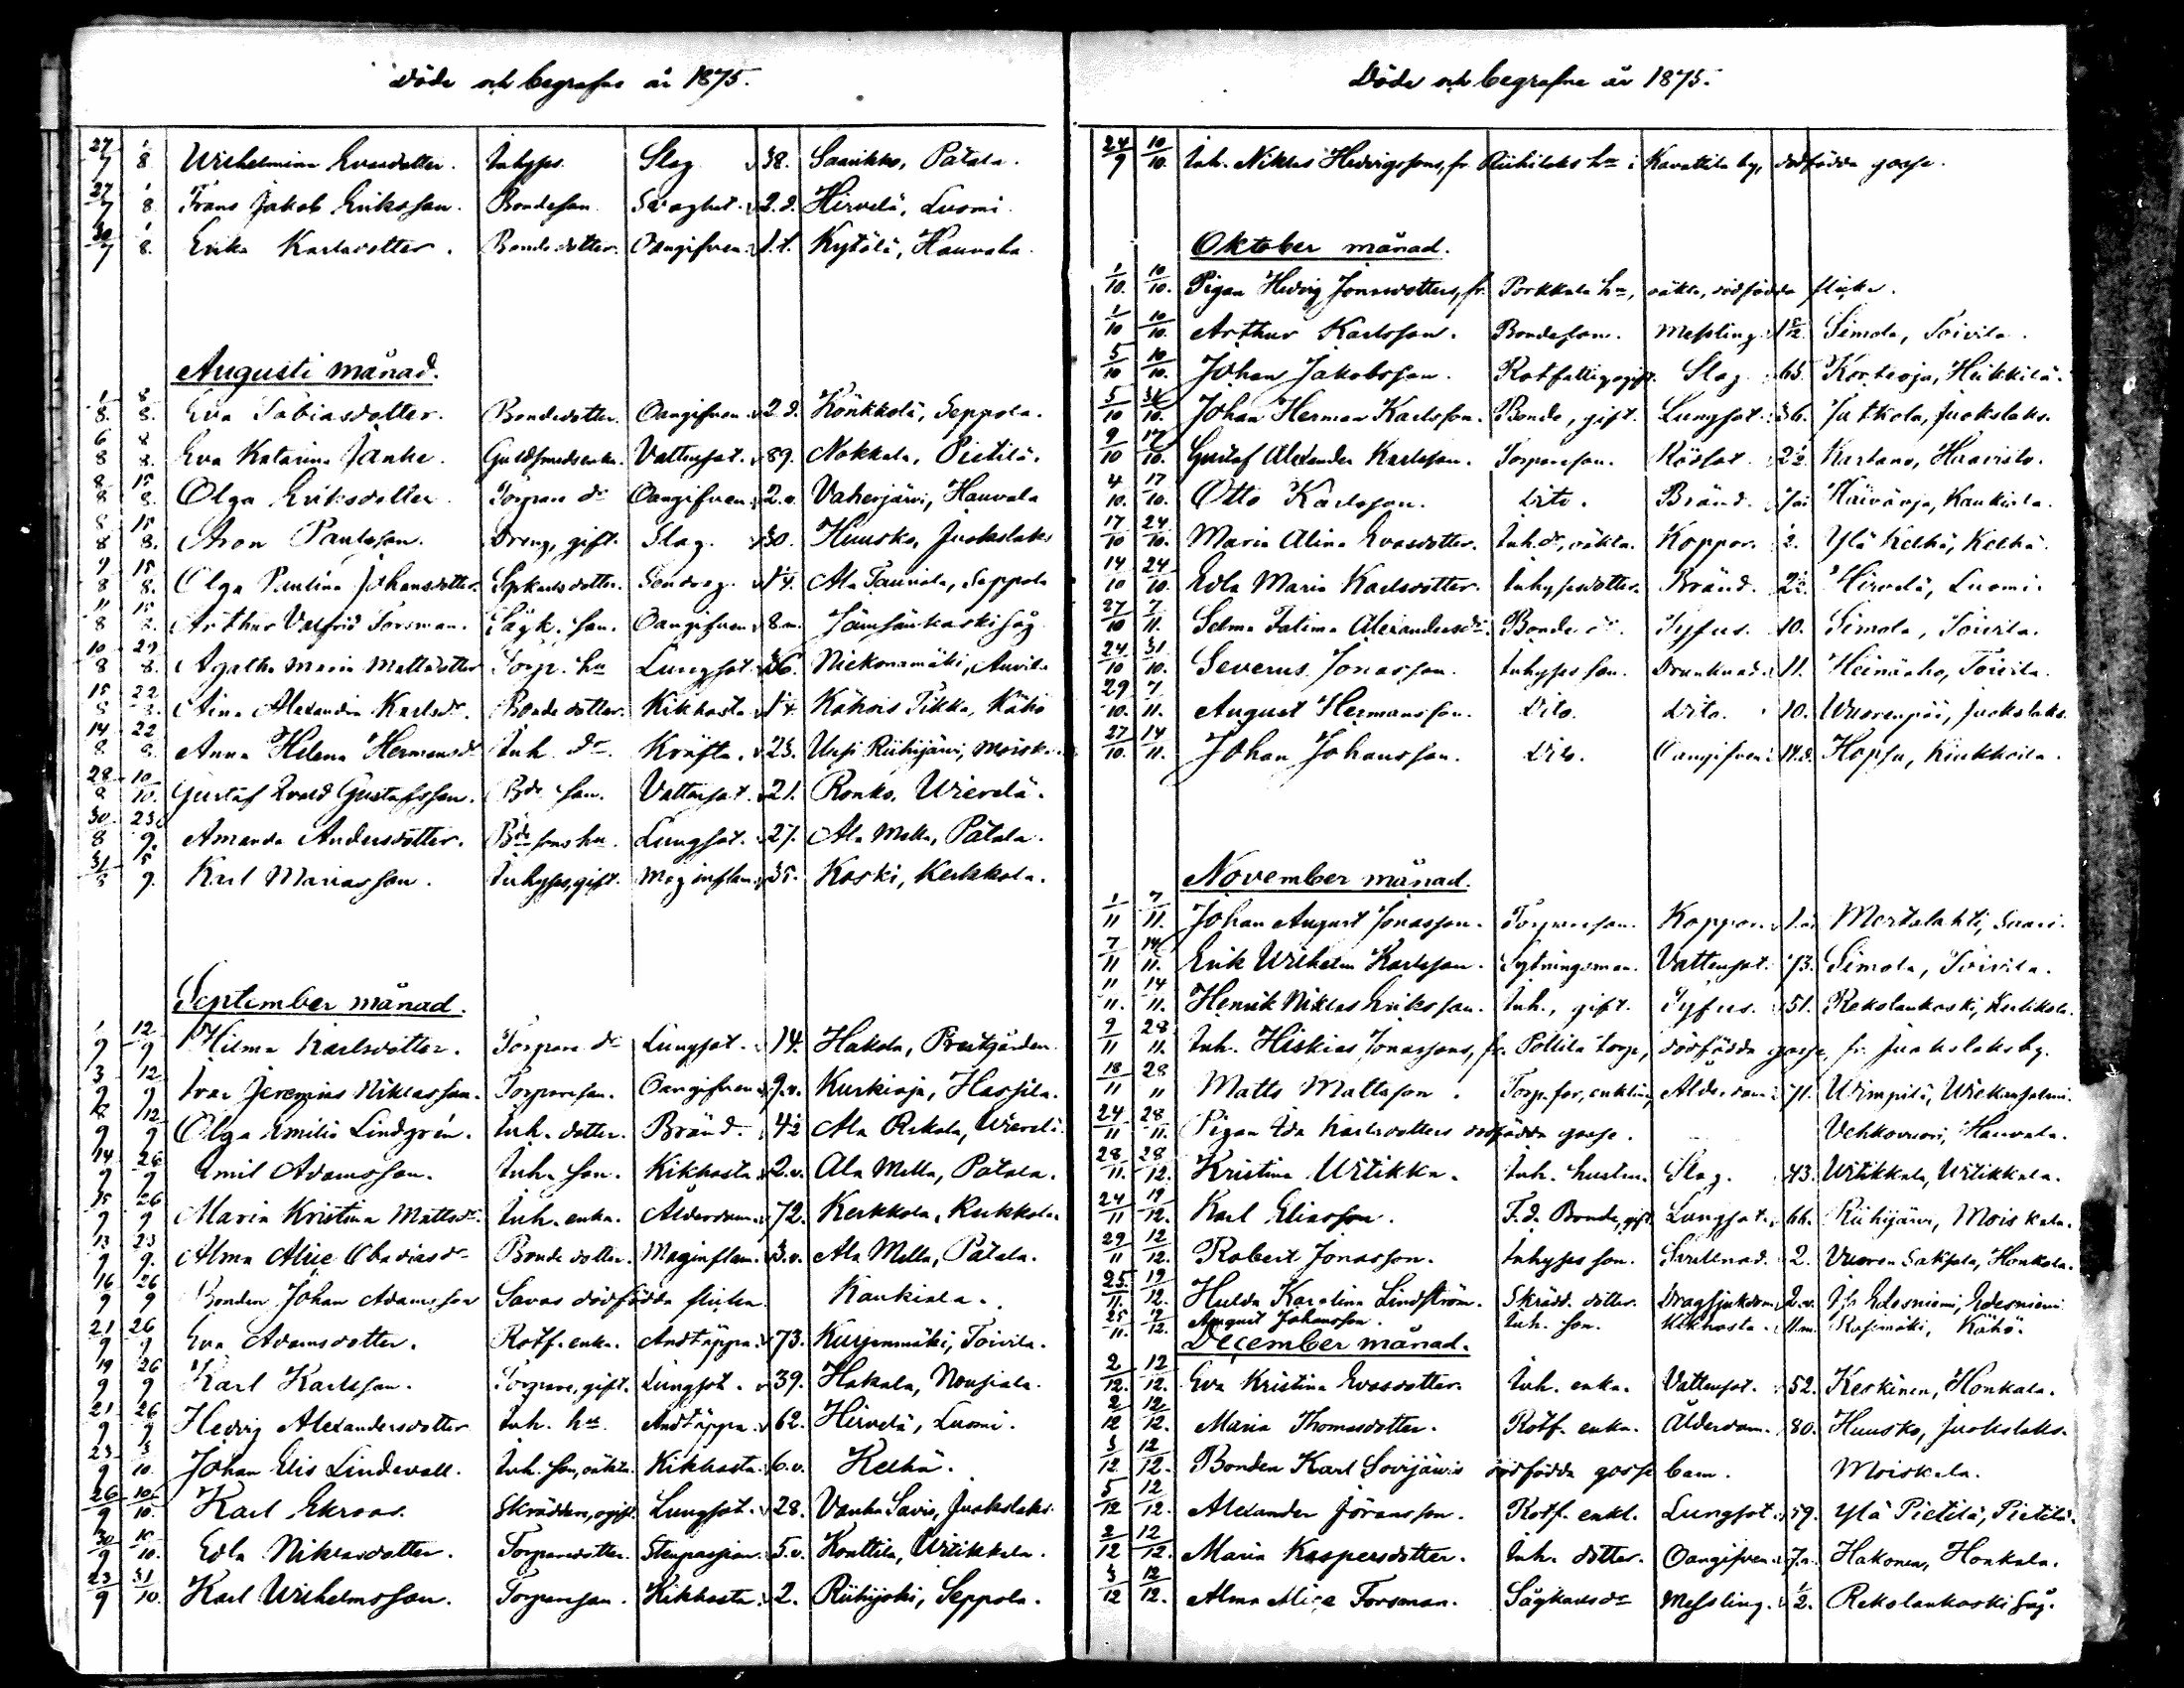 Döde och begrafne år 1875.
27/7 1/8 Wilhelmina Evasdotter. Inhyses. Slag 38. Saarikko, Patala.
27/7 1/8 Frans Jakob Eriksson. Bondeson. Svaghet. 2.d. Hirvelä, Luomi.
30/7 1/8. Erika Karlsdotter. Bondedotter. Oangifven. 1.t. Kytölä, Hauvala.
Augusti månad.
1/8. 8/8. Eva Tobiasdotter. Bondedotter. Oangifven. 2.d. Könkkölä, Seppola.
6/8 8/8. Eva Katarina Janke. Guldsmedsenka. Vattensot. 89. Nokkala, Pietilä.
8/8 15/8. Olga Eriksdotter. Torpare dr Oangifven 2.v. Vaherjärvi, Hauvala
8/8 15/8. Aron Paulsson. Dreng, gift. Slag. 30. Huusko, Juokslaks
9/8 15/8. Olga Paulina Johansdotter. dotter. Sendrag. Ala Tauriala, Seppola
11/8 15/8. Arthur Valfrid Forsman. Sågk. son. Oangifven 8 m. Jämsänkoski såg
10/8 29/8. Agatha Maria Mattsdotter Torp. hu Lungsot. 36. Niekonamäki, Auvila
15/8 22/8. Aina Alexandra Karlsdr. Bonde dotter. Kikhosta Kähöis Tikka, Kähö
14/8 22/8. Anna Helena Hermansdr Inh. dr. Kräfta. 23. Uusi Riihijärvi, Moiskala
28/8 10/10. Gustaf Evald Gustafsson. Bde son. Vattensot. 21. Ronko, Wierelä.
30/8 23/9. Amanda Andersdotter. Bde sons hu. Lungsot. 27. Ala Mella, Patala.
31/8 5/9. Karl Mariasson. Inhyses, gift. Mag inflam. 35. Koski, Kerkkola.
September månad.
1/9 12/9 Hilma Karlsdotter. Torpare dr Lungsot. 14. Hakola, Prestgården.
3/9 12/9 Ivar Jeremias Niklasson. Torpareson. Oangifven 9.v. Kurkioja, Hassila.
8/9 12/9 Olga Emilia Lindgrén. Inh. dotter. Bränd. 4½ Ala Rekola, Wierelä.
14/9 26/9 Emil Adamsson. Inh. son. Kikhosta 2.v. Ala Mella, Patala.
15/9 26/9 Maria Kristina Mattsdr. Inh. enka. Ålderdom. 72. Kerkkola, Kerkkola.
13/9 23/9. Alma Alice Obadiasdr Bonde dotter. Maginflam. 3.v. Ala Mella, Patala.
16/9 26/9 Bonden Johan Adamsson Savas dödfödda flicka. Kaukiala.
21/9 26/9 Eva Adamsdotter. Rotf. enka. Andtäppa. 73. Kurjenmäki, Toivila.
19/9 26/9 Karl Karlsson. Torpare, gift. Lungsot. 39. Hakala, Nousiala.
21/9 26/9 Hedvig Alexandersdotter Inh. hu. Andtäppa. 62. Hirvelä, Luomi.
23/9 3/10. Johan Elis Lindevall. Inh. son, oäkta. Kikhosta. 6.v. Kelhä.
26/9 10/10. Karl Ekroos. Skräddare, ogift. Lungsot. 28. Vanha Savio, Juokslaks.
30/9 10/10. Edla Niklasdotter. Torparedotter. Stenpassion. 5.v. Konttila, Witikkala.
23/9 31/10. Karl Wilhelmsson. Torpareson. Kikhosta. 2. Riihijoki, Seppola.
Döde och begrafne år 1875.
24/9 10/10. Inh. Niklas Hedvigssons, fr. Riihilaks hn i Kavattila by, dödfödda gosse.
Oktober månad.
1/10. 10/10. Pigan Hedvig Jonasdotters, fr. Porkkala hn, oäkta, dödfödda flicka.
1/10 10/10. Arthur Karlsson. Bondeson. Messling. Simola, Toivila.
5/10 10/10. Johan Jakobsson. Rotfattig ogift. Slag. 65. Korteoja, Heikkilä.
5/10 31/10. Johan Herman Karlsson. Bonde, gift. Lungsot. 36. Jukkola, Juokslaks.
9/10 17/10. Gustaf Alexander Karlsson. Torpareson. Rödsot. 2½. Kartano, Haavisto.
4/10. 17/10. Otto Karlsson. Dito. Bränd. Käivärjä, Kaukiala.
17/10 24/10. Maria Alina Evasdotter. Inh. dr, oäkta. Koppor. 2. Ylä Kelhä, Kelhä.
14/10 24/10. Edla Maria Karlsdotter. Inhysesdotter. Bränd. 2½. Hirvelä, Luomi.
27/10 7/11. Selma Fatima Alexandersdr. Bonde dr. Tyfus. 10. Simola, Toivila.
24/10 31/10. Severus Jonasson. Inhyses son. Drunknad. 11. Heinäaho, Toivila.
29/10. 7/11. August Hermansson. Dito. Dito. 10. Wuorenpää, Juokslaks.
27/10. 14/11. Johan Johansson. Dito. Oangifven. 14.d. Hopsu, Kaukkaila.
November månad.
1/11 7/11. Johan August Jonasson. Torpareson. Koppor. Mertalahti, Saari.
7/11 14/11. Erik Wilhelm Karlsson. Sytningsman. Vattensot. 73. Simola, Toivila.
11/11. 14/11. Henrik Niklas Eriksson. Inh., gift. Tyfus. 51. Rekolankoski, Kerkkola.
9/11 28/11. Inh. Hiskias Jonassons, fr. Pollila torp, dödfödda gosse, fr. Juokslaks by.
18/11 28/11 Matts Mattsson. Torp. far, enkling Ålderdom. 71. Wimpilä, Wiekarsalmi.
24/11 28/11. Pigan Ida Karlsdotters dödfödda gosse. Vehkovuori, Hauvala.
28/11. 28/12. Kristina Witikka. Inh. hustru. Slag. 43. Witikkala, Witikkala.
24/11 19/12. Karl Eliasson. F.d. Bonde, gift Lungsot. 66. Riihijärvi, Moiskala.
29/11 12/12. Robert Jonasson. Inhyses son. Svullnad. 2. Vuoren Sakssala, Honkala.
25/11. 19/12. Hulda Karolina Lindström. Skrädd. dotter. Dragsjukdom. 2.v. Iso Edesniemi, Edesniemi
25/11. 19/12. August Johansson. Inh. son. Kikhosta. 11.m. Rusimäki, Kähö.
December månad.
2/12. 12/12. Eva Kristina Evasdotter. Inh. enka. Vattensot. 52. Keskinen, Honkala.
2/12 12/12. Maria Thomasdotter. Rotf. enka. Ålderdom. 80. Huusko, Juokslaks.
3/12. 12/12. Bonden Karl Sovijärvis dödfödda gosse barn. Moiskala.
5/12 12/12. Alexander Jöransson. Rotf. enkl. Lungsot. 59. Ylä Pietilä, Pietilä.
2/12 12/12. Maria Kaspersdotter. Inh. dotter. Oangifven. Hakonen, Honkala.
3/12 12/12. Alma Alice Forsman. Sågkarlsdr Messling. ½. Rekolankoski såg.